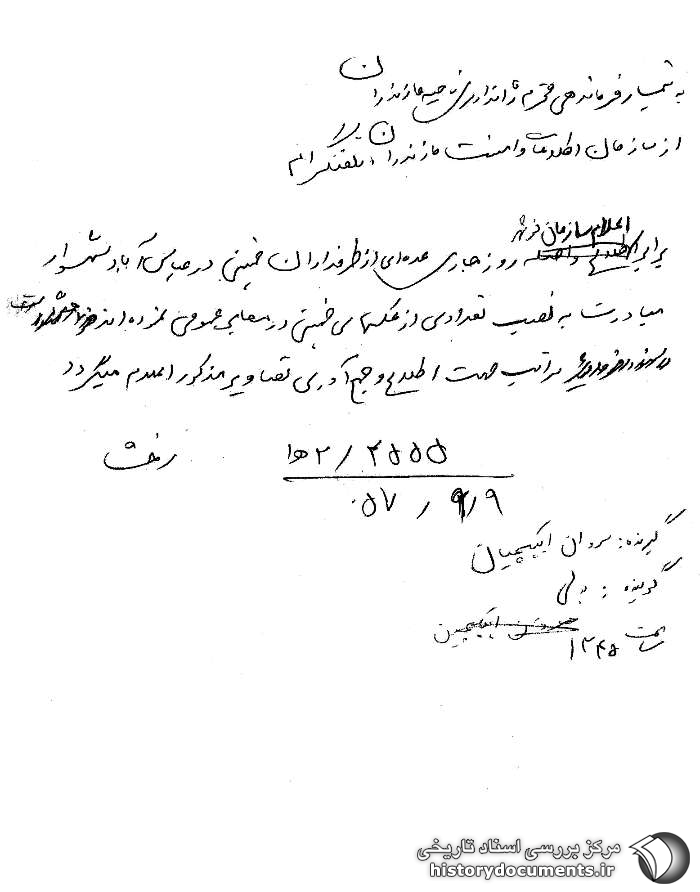 به تیمسار فرماندهی محترم ژاندارمری ناحیه مازندران
از سازمان اطلاعات و امنیت مازندران تلفنگرام
اعلام سازمان نوشهر
برابر اطلاع واصله روز جاری عده‌ای از طرفداران خمینی در عباس آباد شهسوار
مبادرت به نصب تعدادی از عکسهای خمینی در معابر عمومی نموده‌اند
مراتب جهت اطلاع و جمع آوری تصاویر مذکور اعلام میگردد
۲/۴۵۵۵ ه‍ا
۵۷/۹/۹
گیرنده: ستوان
گوینده:
ساعت ۱۳۴۵
مرکز بررسی اسناد تاریخی
historydocuments.ir